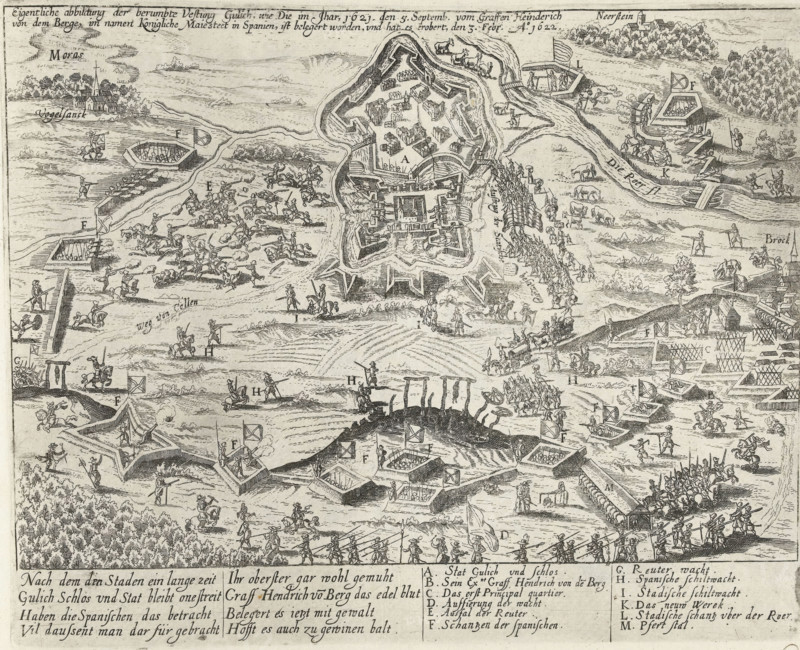 Eigentliche abbildung der berumbte Vestung Gulich, wie Die im Jhar, 1621. den 5. Septemb. vom Graffen Heinderich
von dem Berge, im namen Königliche Maiestect in Spanien, ist belegert worden, vnd hat es erobert, den 3. Febr. Aº 1622
Neerstein
Moras
Vogelsanck
F
F
A
F
E
K
Die Roer fl
Brock
F
Weg von Cöllen
I
I
H
F
C
G
H
H
H
F
F
F
F
F
F
B
M
D
Nach dem den Staden ein lange zeit
Gulich Schlos vnd Stat bleib onestreit
Haben die Spanischen das betracht
Vil daussent man dar für gebracht
Ihr oberster gar wohl gemuht
Graff Hendrich vō Berg das edel blut
Belegert es ietzt mit gewalt
Hofft es auch zu gewinen balt.
A. Stat Gulich vnd schlos.
B. Sein Ex Graff Hendrich von dē Berg
C. Das erst Principal quartier.
D. Auffürung der wacht.
E. Aasfal der Reuter.
F. Schantzen der spanischen.
G. Reuter, wacht.
H. Spanische schiltwacht.
I. Stadische schiltwacht.
K. Das neuw Werck
L. Stadische schantz vber der Roer
M. Pfert stal.